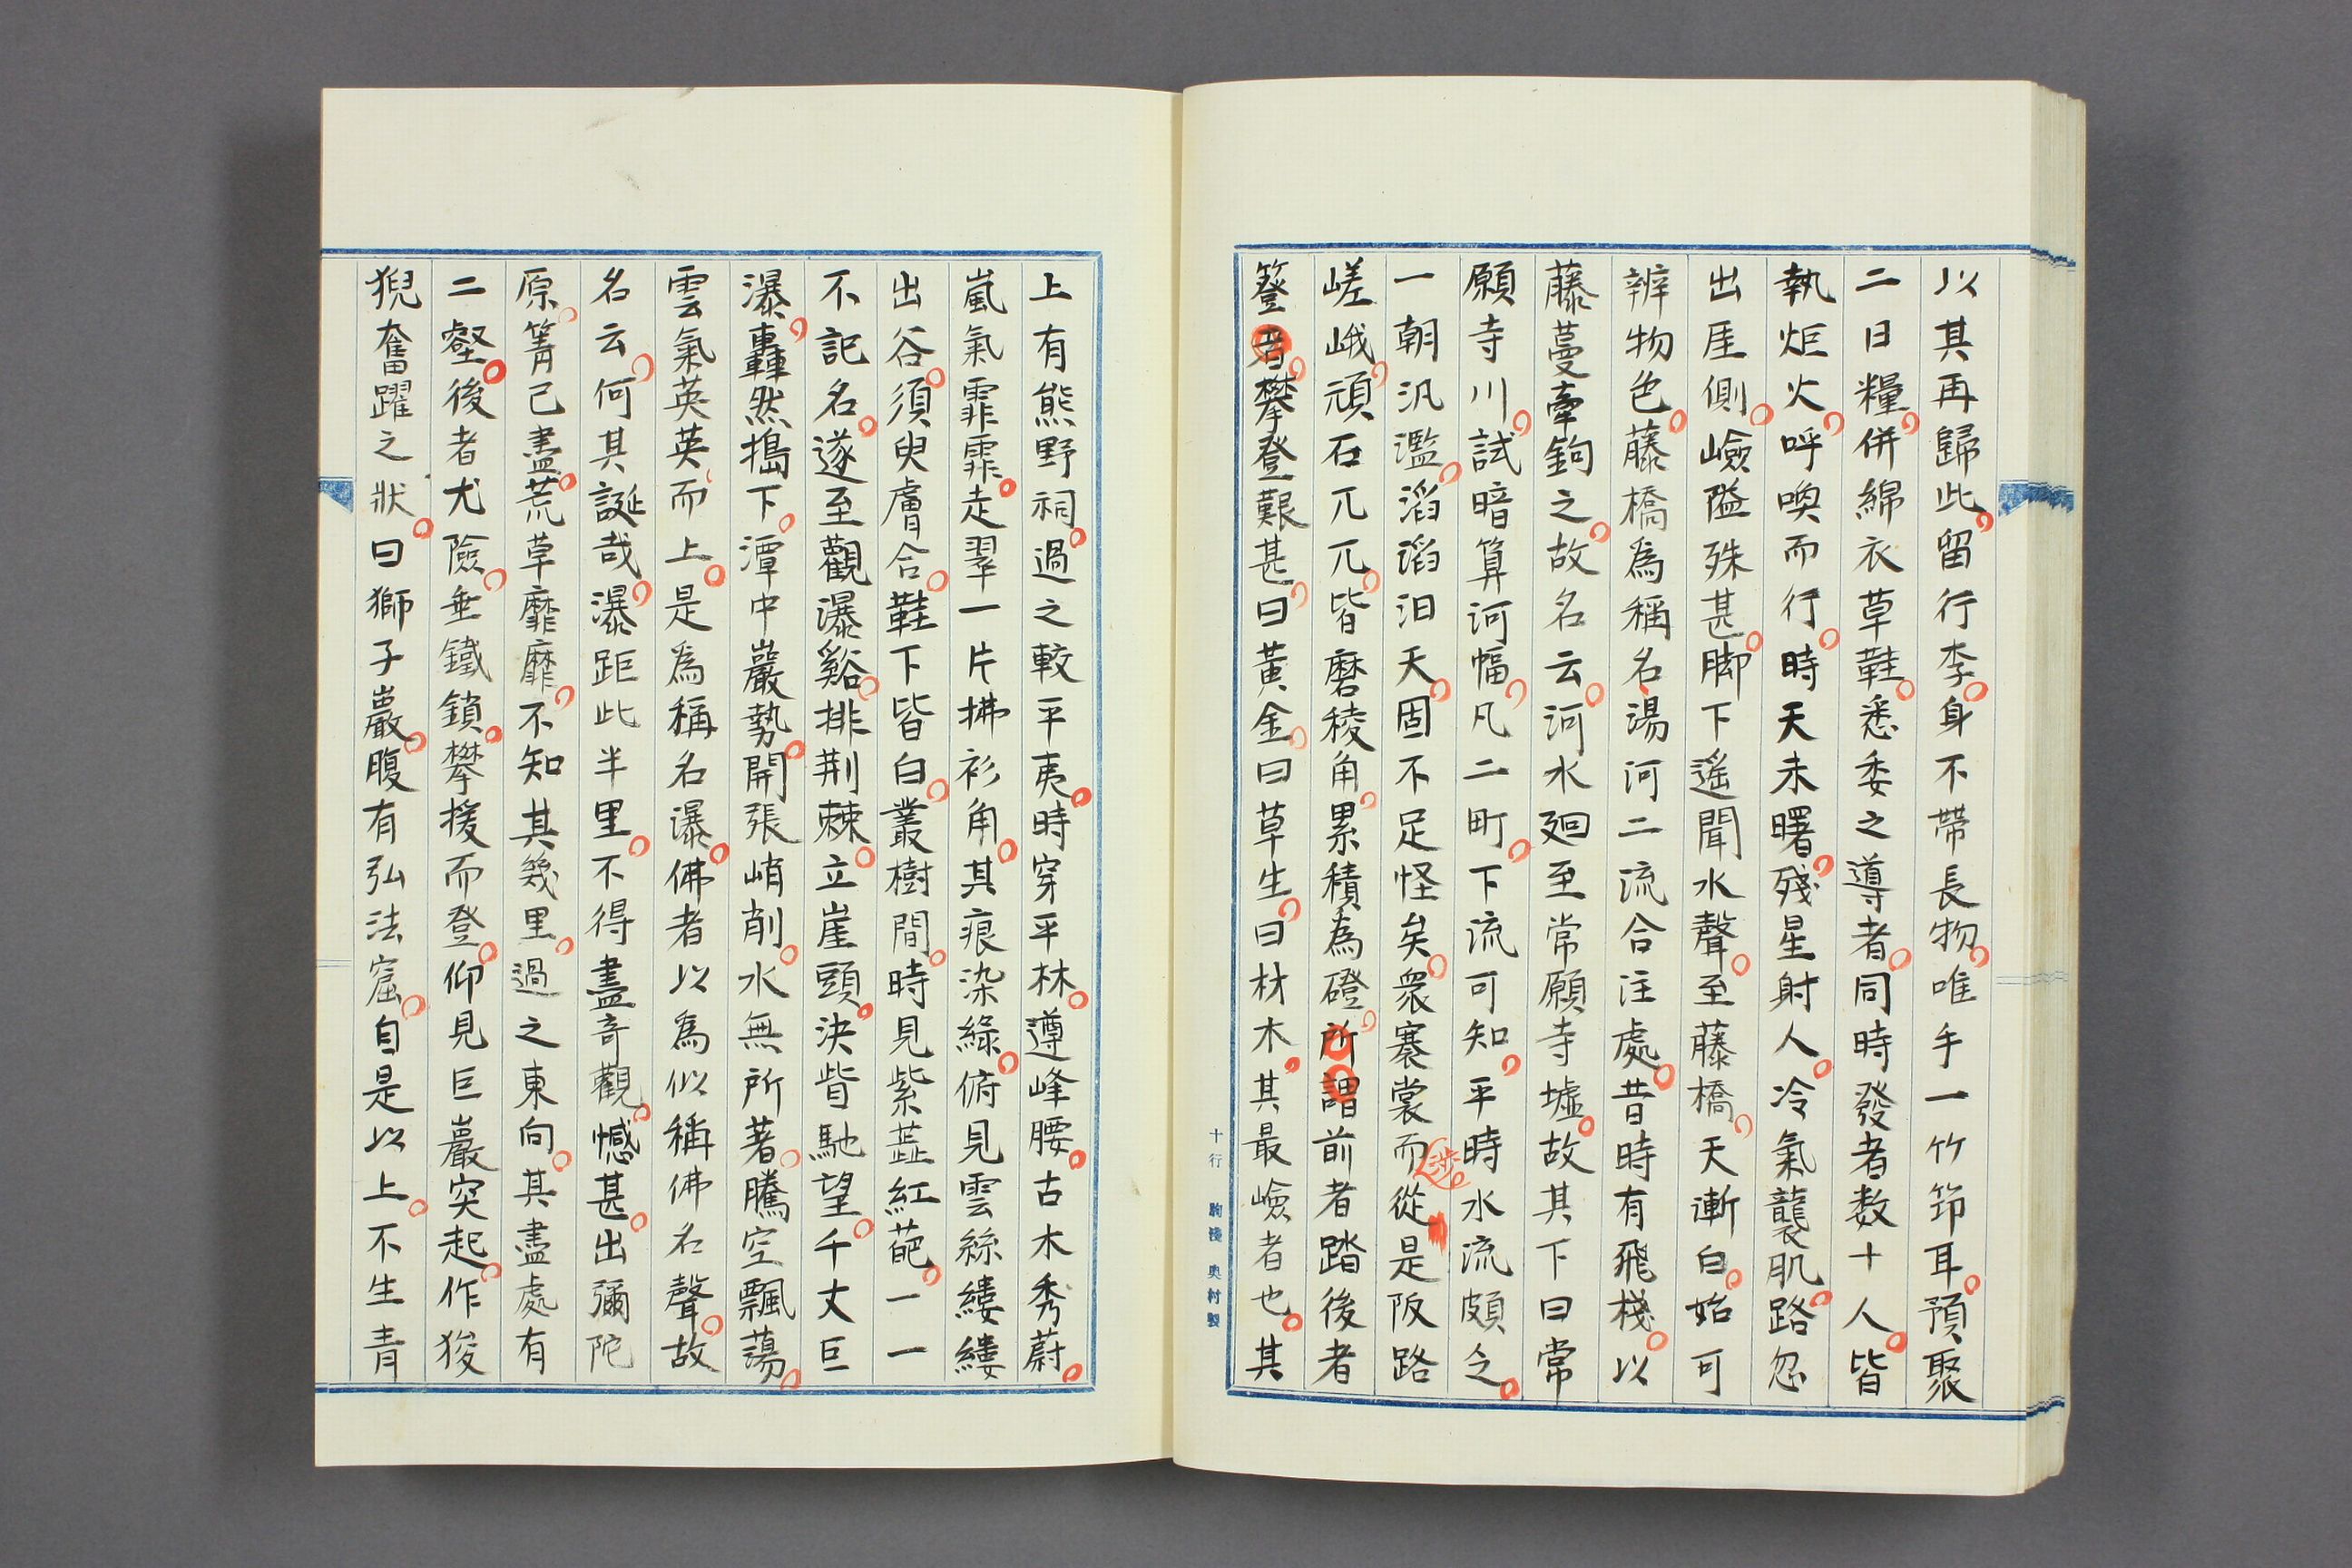 以其再歸此留行李身不帶長物唯手一竹筇耳預聚
二日糧併綿衣草鞋悉委之導者同時發者数十人皆
執炬火呼喚而行時天未曙殘星射人冷氣襲肌路忽
出厓側嶮隘殊甚脚下遥聞水聲至藤橋天漸白始可
辨物色藤橋為稱名湯河二流合注處昔時有飛棧以
藤蔓牽鉤之故名云河水廻至常願寺墟故其下曰常
願寺川試暗算河幅凡二町下流可知平時水流頗仝
一朝汎濫滔滔汩天固不足怪矣衆褰裳而涉從是阪路
嵯峨頑石兀兀皆磨稜角累積為磴所謂前者踏後者
簦者攀登艱甚曰黃金曰草生曰材木其最嶮者也其
十行 駒後 奥村製
上有熊野祠過之較平夷時穿平林遵峰腰古木秀蔚
嵐氣霏霏走翠一片拂衫角其痕染綠俯見雲絲縷縷
出谷須臾膚合鞋下皆白叢樹間時見紫蕋紅葩一一
不記名遂至觀瀑谿排荆棘立崖頭決眥馳望千丈巨
瀑轟然搗下潭中巖勢開張峭削水無所著騰空飄蕩
雲氣英英而上是為稱名瀑佛者以為似稱佛名聲故
名云何其誕哉瀑距此半里不得盡竒觀憾甚出彌陀
原箐已盡荒草靡靡不知其幾里過之東向其盡處有
二壑後者尤險垂鐵鎖攀援而登仰見巨巖突起作狻
猊奮躍之狀曰獅子巖腹有弘法窟自是以上不生青